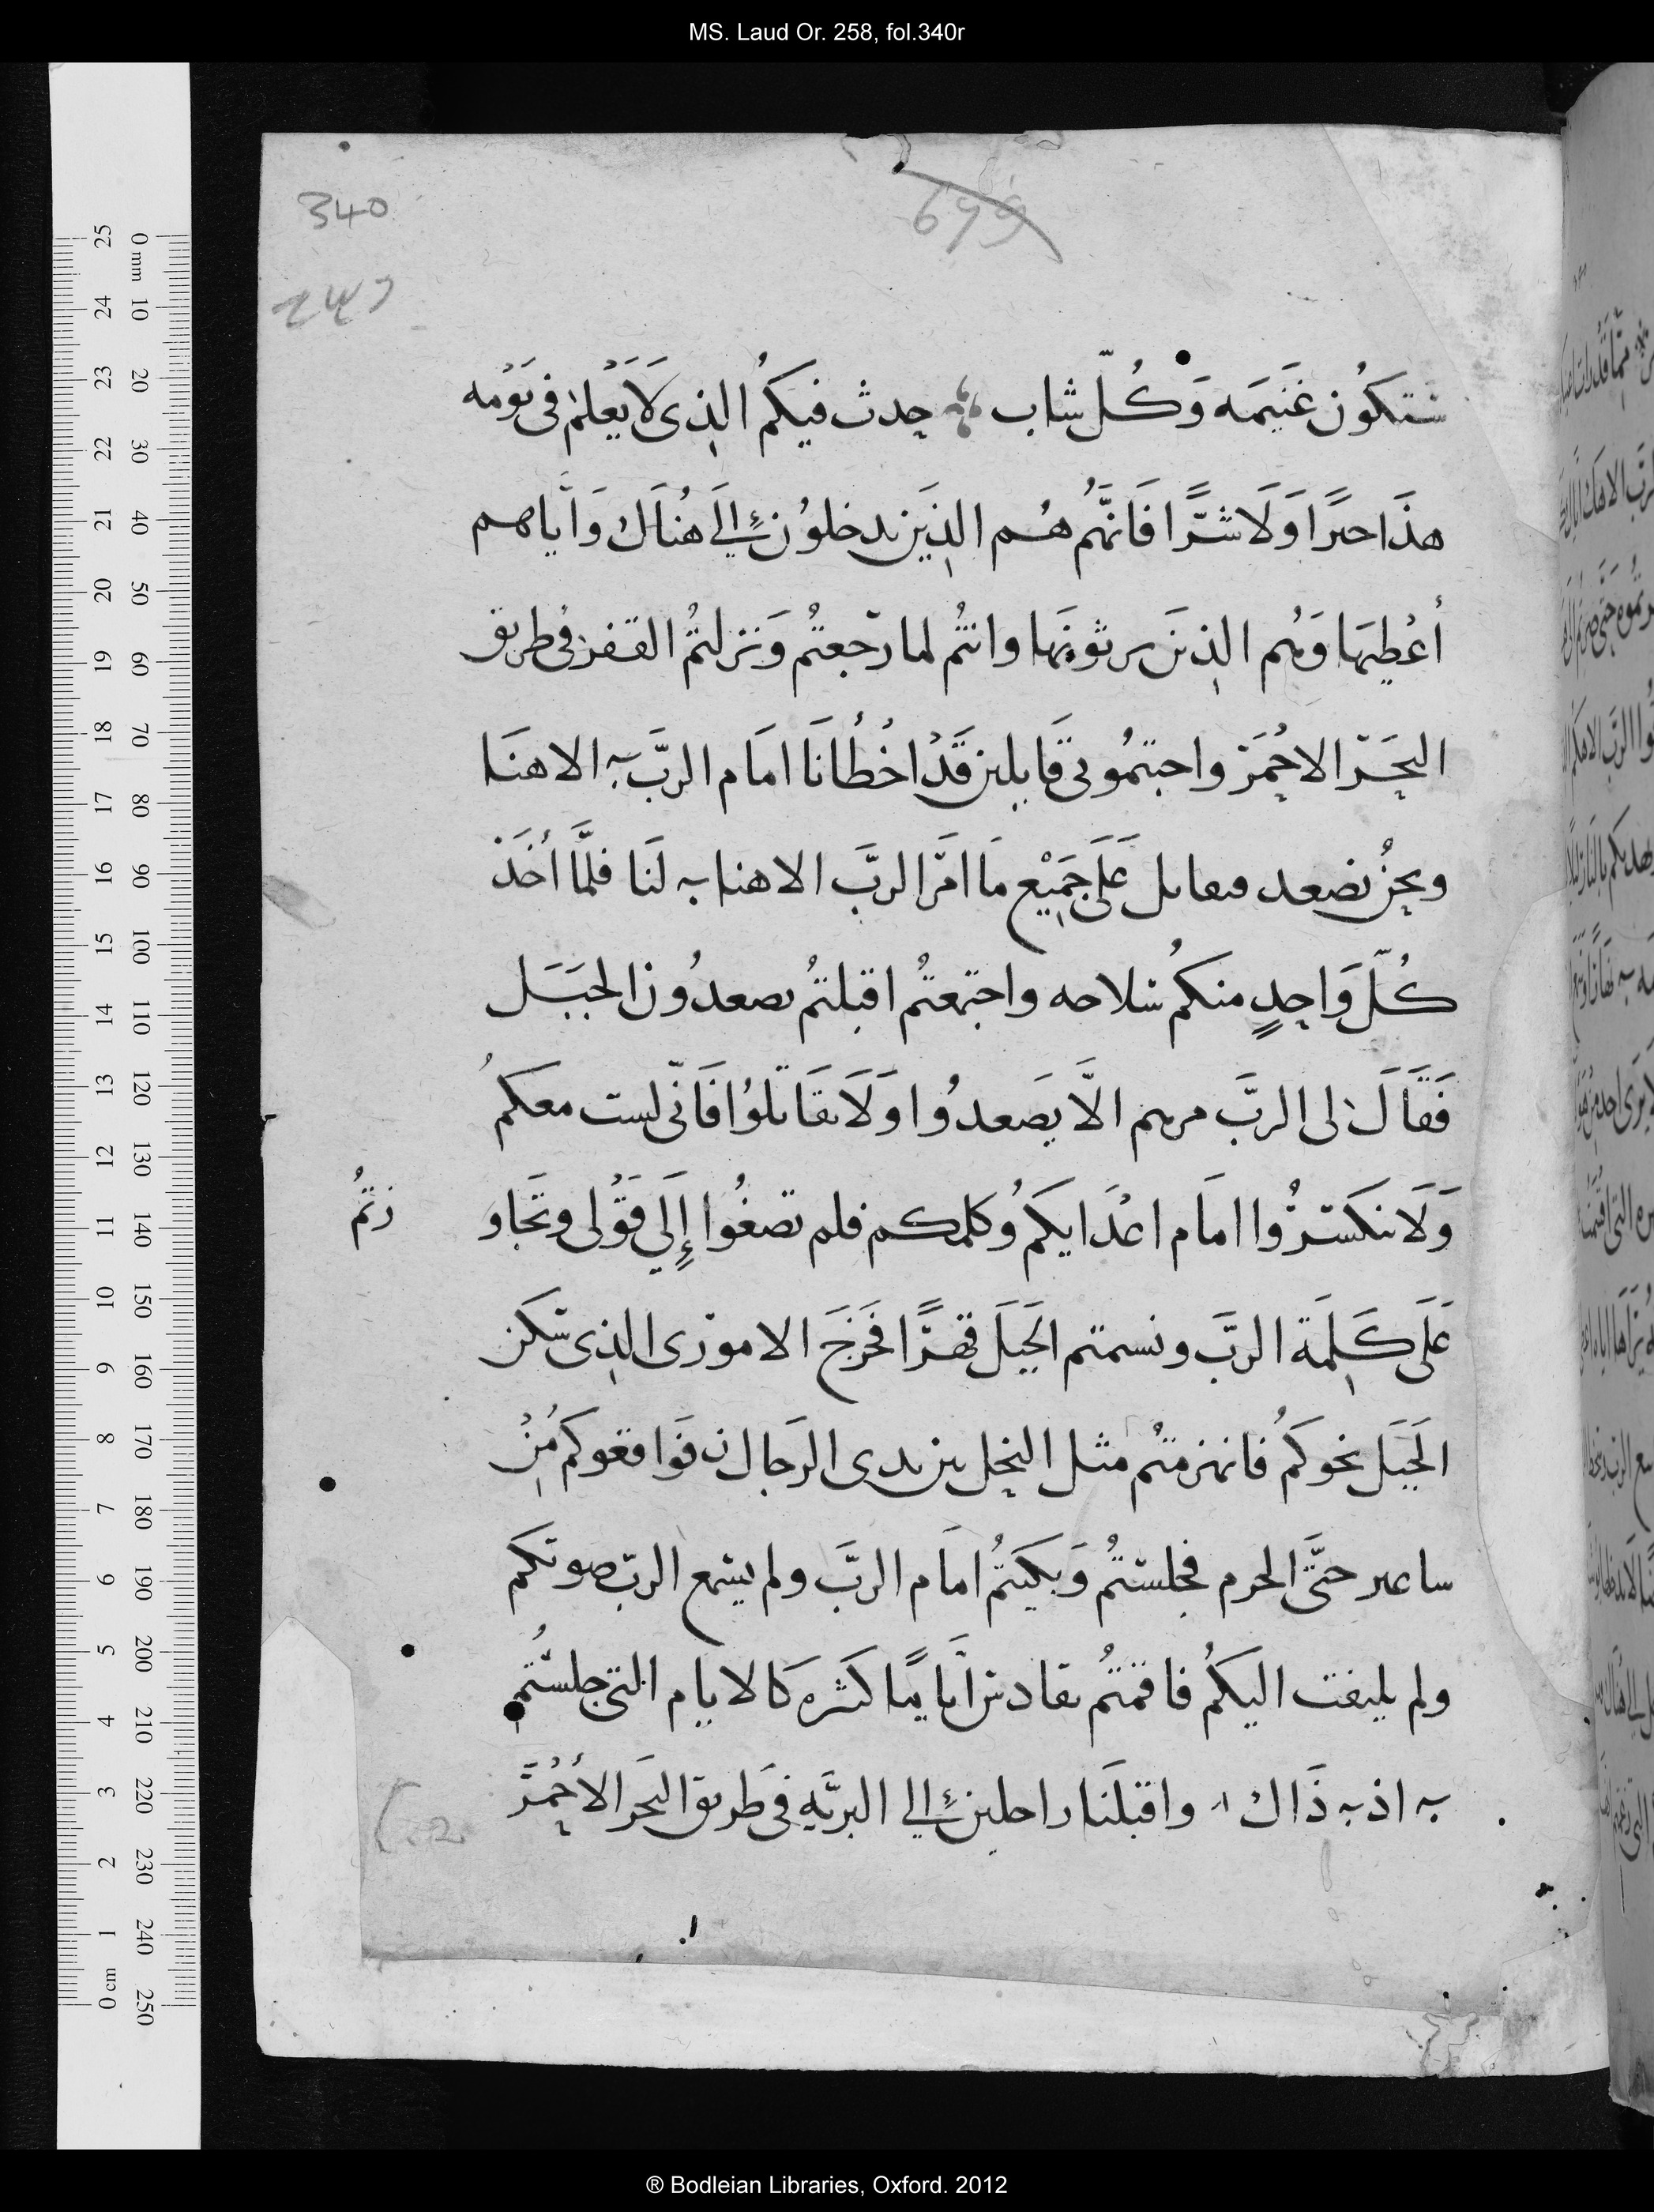 MS. Laud Or. 258, fol.340r
340
699
ستكُون غَنيمَه وَكُلّ شاب حدث فيكمُ الذى لَا يَعْلمْ فى يَوْمه
هذَا خيرًا وَلَا شرًّا فَانَّهُم هُم الذِيَن يدخلوُن إلَى هُنَاك وَايَّاهم
أعْطِيهَا وَهُم الذِينَ يرثونَها وانتُم لما رَجعتُم وَنزلتمُ القفر فى طريق
البحَر الاحْمَرَ واجبتمُونى قَايلين قَدْ اخْطُأنَا امَام الرَّبّ الاهنَا
ونحنُ نصعد فنقاتل عَلَى جَمِيْع مَا امَر الرَّبَ الاهنا به لَنَا فلَّما أخَذ
كُلّ وَاحِدٍ منكمُ سلاحه واجتمعتُم اقبلتمُ تصعدُون الجبَل
فَقَالَ لى الربَّ مرهم الَّا يَصَعدُوا وَلَا يقَاتلوُا فَانّى لست معكمُ
وَلَا تنكسَرُوا امَام اعْدَايكمُ وكلمتكم فلم تصغُوا إلَي قَوْلى وتَجَاو
زتمُ
عَلَى كَلِمَة الربَّ ونسمتم الجَبَل قهرًا فَخَرَجَ الامورى الذِى سَكن
الجَبَل نحوكمُ فانهزمتُم مثل النحل بين يدى الرجال فَواقعوكم مِنْ
ساعير حتَّى الحرم فجلستمُ وَبكيتمُ امَام الربَّ ولم يسَمع الرب صوتكم
ولم يلتفت اليكمُ فاقمتُم بقادس أيَّامًا كَثيرَه كَالايام التى جلستُم
به اذ به ذَاك واقبلنَا راحلين إلي البريَّهِ فى طَريق البحَر الأحْمَرَ
® Bodleian Libraries, Oxford. 2012